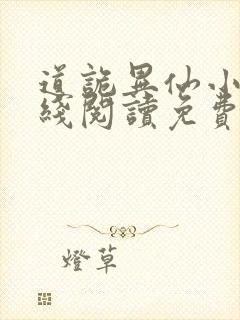 道詭異仙小
綫閱讀免費
燈草